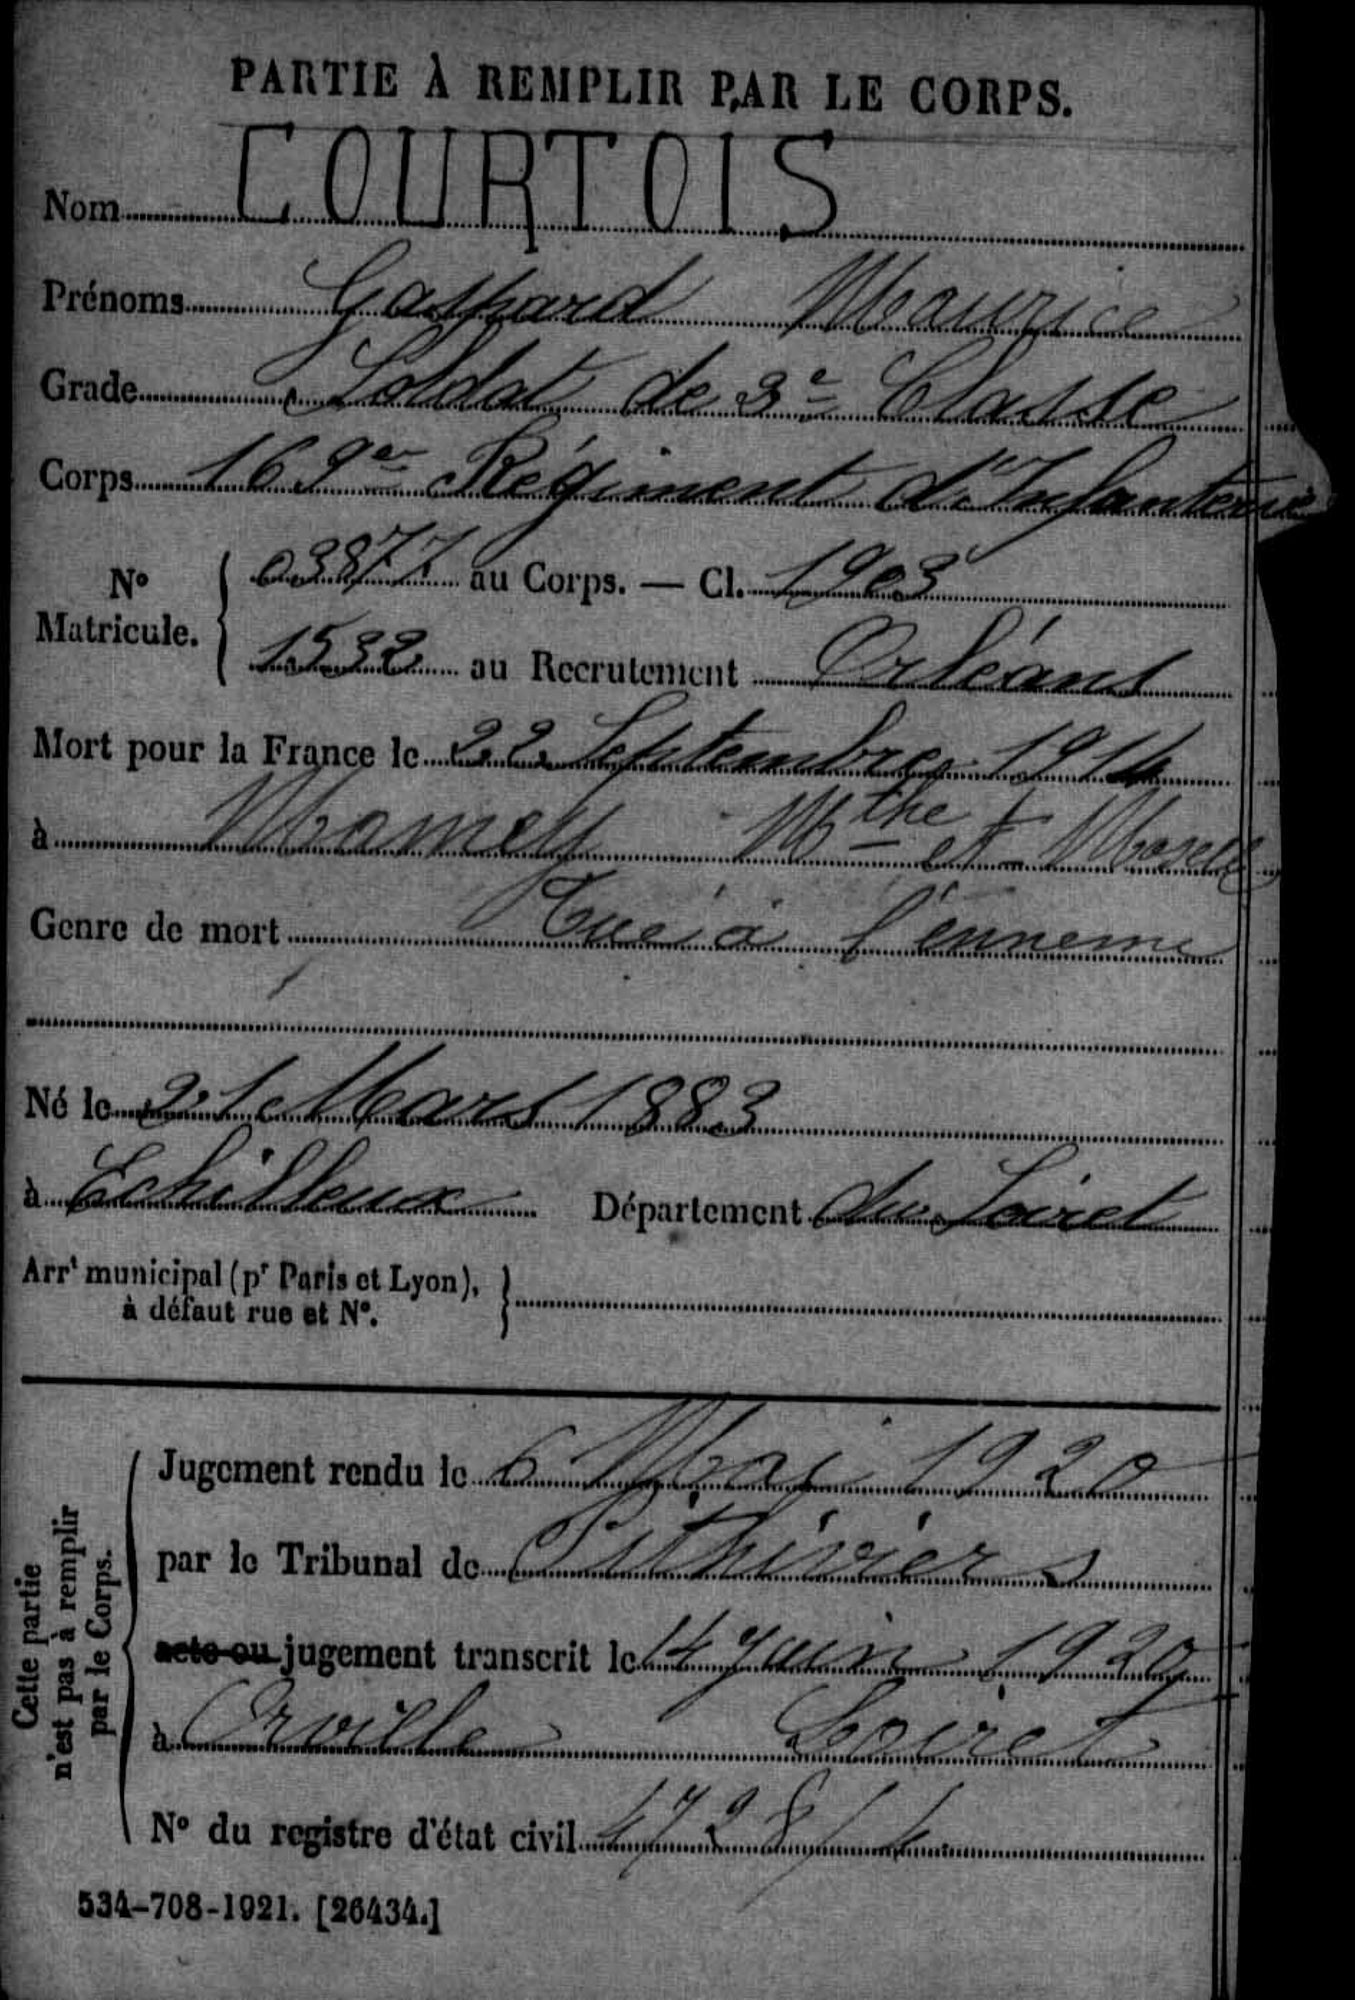 PARTIE À REMPLIR PAR LE CORPS.
Nom COURTOIS
Prénoms Gaspard Maurice
Grade Soldat de 2e Classe
Corps 169e Régiment d'Infanterie
No Matricule. { 03877 au Corps. — Cl. 1903
1532 au Recrutement Orléans
Mort pour la France le 22 Septembre 1914
à Mamey Mthe et Moselle
Genre de mort Tué à l'ennemi
Né le 21 Mars 1883
à Echilleux Département du Loiret
Arrt municipal (pr Paris et Lyon),
à défaut rue et No.
Cette partie
n'est pas à remplir
par le Corps.
Jugement rendu le 6 Mai 1920
par le Tribunal de Pithiviers
acte ou jugement transcrit le 14 Juin 1920
à Orville Loiret
No du registre d'état civil
534-708-1921. [26434.]